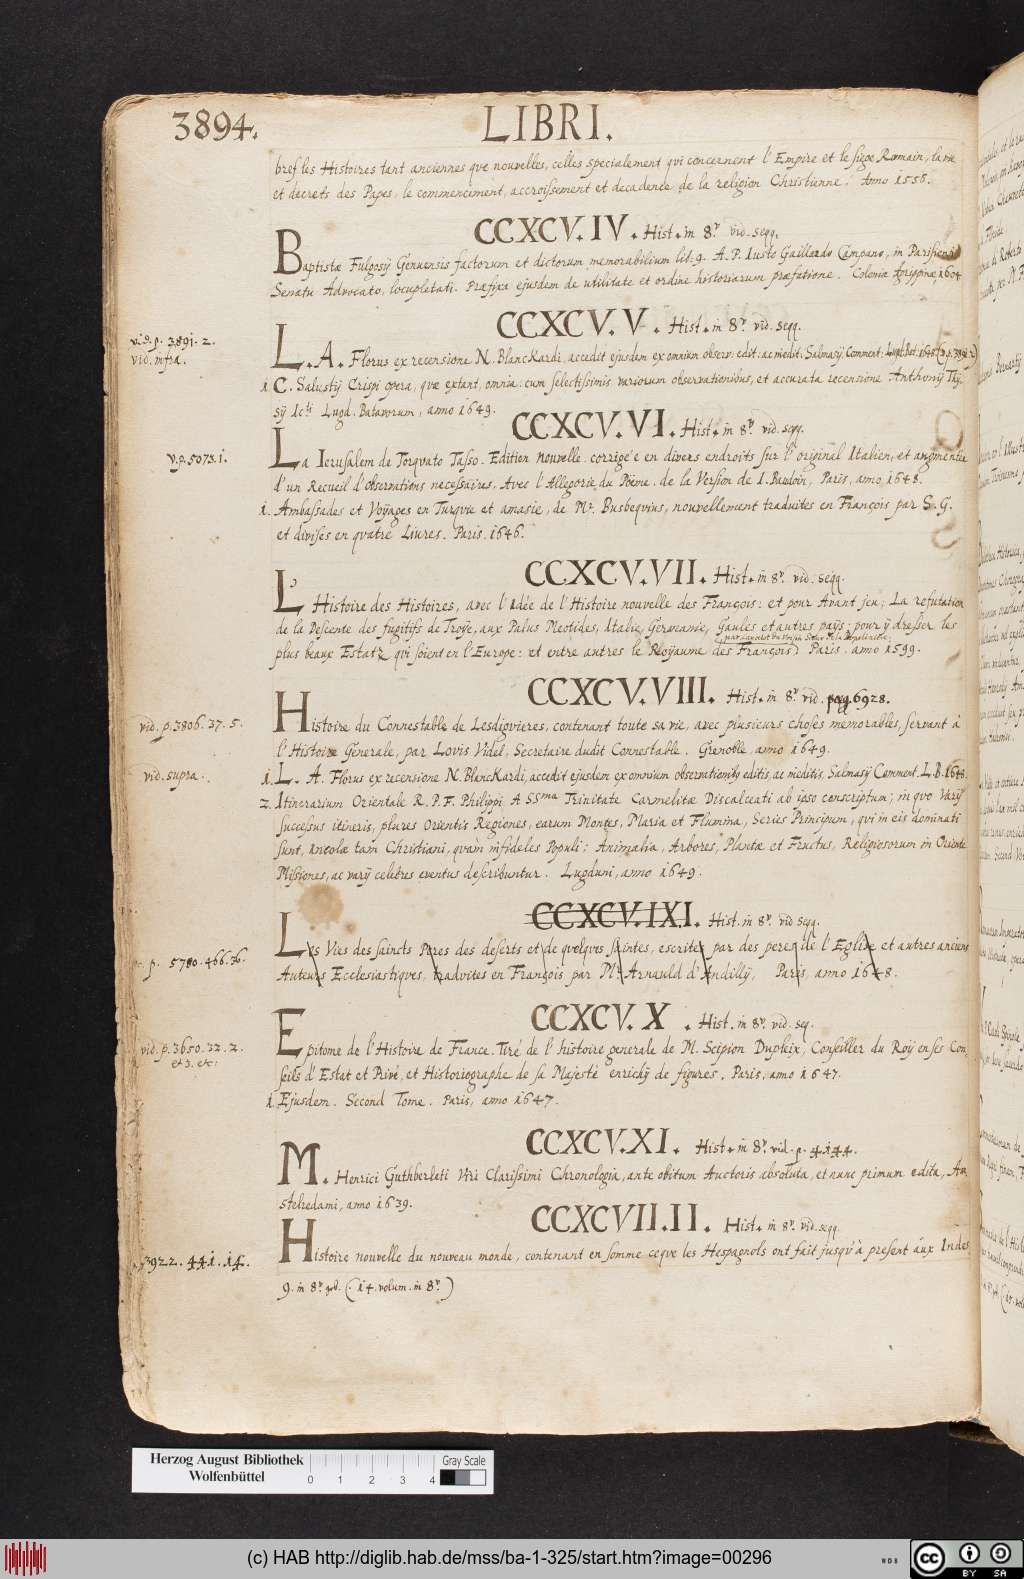 3894. LIBRI.
bref les Histoires tant anciennes que nouvelles, celles specialement qui concernent l'Empire et le siege Romain, la vie
et decrets des Papes, le commencement, accroissement et decadence de la religion Christienne. Anno 1558.
CCXCV.IV. Hist. in 8º. vid. seqq.
Baptistæ Fulgosij Genuensis factorum et dictorum memorabilium lib: 9. A.P. Iusto Gaillardo Campano, in Parisiensi
Senatu Advocato, locupletati. Præfixa ejusdem de utilitate et ordine historiarum præfatione. Coloniæ Agrippinæ, 1604
CCXCV.V. Hist. in 8º. vid. seqq.
vid. p. 3891. 2.
vid. infra.
L. A. Florus ex recensione N. Blanckardi, accedit ejusdem ex omnium observ: edit: ac inedit: Salmasij Comment: Lugd. Bat. 1648
1 C. Salustij Crispi opera, quæ extant, omnia: cum selectissimis variorum observationibus, et accurata recensione Anthonij Thÿ-
sÿ Icti Lugd. Batavorum, anno 1649.
CCXCV.VI. Hist. in 8º. vid. seqq.
v.p. 5073. 1.
La Ierusalem de Torquato Tasso. Edition nouvelle. corrigée en divers endroits sur l'original Italien, et augmentée
d'un Recueil d'observations necessaires. Avec l'Allegorie du Poëme. de la Version de I. Baudoin, Paris, anno, 1648.
1. Ambassades et Voyages en Turquie et amasie, de Mr. Busbequius, nouvellement traduites en François par S. G.
et divisés en quatre Liures. Paris. 1646.
CCXCV.VII. Hist. in 8º. vid. seqq.
L'Histoire des Histoires, avec l'Idée de l'Histoire nouvelle des François: et pour Avant jeu; La refutation
de la Descente des fugitifs de Troÿe, aux Palus Meotides, Italie, Germanie, Gaules et autres paÿs: pour ÿ dresser les
plus beaux Estatz qui soient en l'Europe: et entre autres le Roÿaume des François. Paris. anno 1599.
CCXCV.VIII. Hist. in 8º. vid. pag. 6928.
vid. p. 3806. 37. 5.
Histoire du Connestable de Lesdiguieres, contenant toute sa vie, avec plusieurs choses memorables, servant à
l'Histoire Generale, par Lovis Videl, Secretaire dudit Connestable. Grenoble, anno 1649.
vid. supra.
1. L. A. Florus ex recensione N. Blanckardi, accedit ejusdem ex omnium observationibus editis, ac ineditis, Salmasij Comment. L.B. 1648.
2. Itinerarium Orientale R. P. F. Philippi A SSma Trinitate Carmelitæ Discalceati ab ipso conscriptum; in quo Varij
successus itineris, plures Orientis Regiones, earum Montes, Maria et Flumina, Series Principum, qui in eis dominati
sunt, Incolæ tam Christiani, quam infideles Populi: Animalia, Arbores, Plantæ et Fructus, Religiosorum in Oriente
Missiones, ac varij celebres eventus describuntur. Lugduni, anno 1649.
CCXCV.IX.I. Hist. in 8º. vid seqq.
p. 5780. 466. 36.
Les Vies des saincts Peres des deserts et de quelques saintes, escrites par des peres de l'Eglise et autres anciens
Auteurs Ecclesiastiques, traduites en François par Mr. Arnauld d'Andillÿ, Paris, anno 1648.
CCXCV.X. Hist. in 8º. vid. seq.
vid. p. 3650. 32. 2.
et 3. etc:
Epitome de l'Histoire de France. Tiré de l'histoire generale de M. Scipion Dupleix, Conseiller du Roÿ en ses Con-
seils d'Estat et Privé, et Historiographe de sa Majesté enrichÿ de figures. Paris, anno 1647.
1. Ejusdem. Second Tome. Paris, anno 1647.
CCXCV.XI. Hist. in 8º. vid. p. 4144.
M. Henrici Guthberleti Viri Clarissimi Chronologia, ante obitum Auctoris absoluta, et nunc primum edita, Am
stelredami, anno 1639.
CCXCVII.II. Hist. in 8º. vid. seqq.
3922. 441. 14.
Histoire nouvelle du nouveau monde, contenant en somme ceque les Hespagnols ont fait jusqu'à present aux Indes
9. in 8º. (14. volum. in 8º.)
Herzog August Bibliothek
Wolfenbüttel
0 1 2 3 4
Gray Scale
(c) HAB http://diglib.hab.de/mss/ba-1-325/start.htm?image=00296
WDB
cc BY SA